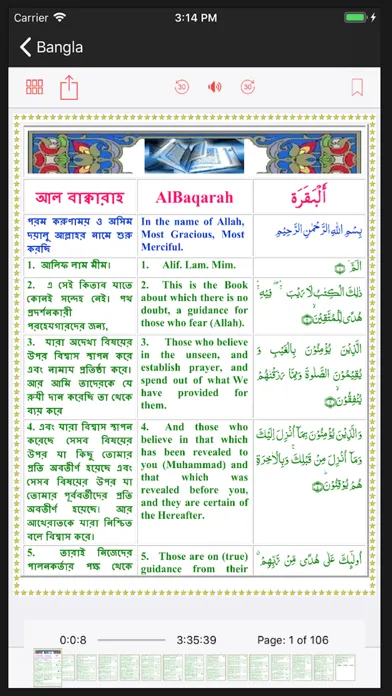 Carrier 3:14 PM
Bangla
30 30
আল বাক্বারাহ
পরম করুণাময় ও অসিম
দয়ালু আল্লাহর নামে শুরু
করছি
1. আলিফ লাম মীম।
2. এ সেই কিতাব যাতে
কোনই সন্দেহ নেই। পথ
প্রদর্শনকারী
পরহেযগারদের জন্য,
3. যারা অদেখা বিষয়ের
উপর বিশ্বাস স্থাপন করে
এবং নামায প্রতিষ্ঠা করে।
আর আমি তাদেরকে যে
রুযী দান করেছি তা থেকে
ব্যয় করে
4. এবং যারা বিশ্বাস স্থাপন
করেছে সেসব বিষয়ের
উপর যা কিছু তোমার
প্রতি অবতীর্ণ হয়েছে এবং
সেসব বিষয়ের উপর যা
তোমার পূর্ববর্তীদের প্রতি
অবতীর্ণ হয়েছে। আর
আখেরাতকে যারা নিশ্চিত
বলে বিশ্বাস করে।
5. তারাই নিজেদের
পালনকর্তার পক্ষ থেকে
AlBaqarah
In the name of Allah,
Most Gracious, Most
Merciful.
1. Alif. Lam. Mim.
2. This is the Book
about which there is no
doubt, a guidance for
those who fear (Allah).
3. Those who believe
in the unseen, and
establish prayer, and
spend out of what We
have provided for
them.
4. And those who
believe in that which
has been revealed to
you (Muhammad) and
that which was
revealed before you,
and they are certain of
the Hereafter.
5. Those are on (true)
guidance from their
أَلْبَقَرَة
بِسْمِ اللهِ الرَّحْمٰنِ الرَّحِيْمِ
الٓمّٓ ۚ
ذٰلِكَ الْكِتٰبُ لَا رَيْبَ ۛ فِيْهِ ۛ
هُدًى لِّلْمُتَّقِيْنَ ۙ
الَّذِيْنَ يُؤْمِنُوْنَ بِالْغَيْبِ وَ
يُقِيْمُوْنَ الصَّلٰوةَ وَمِمَّا رَزَقْنٰهُمْ
يُنْفِقُوْنَ ۙ
وَالَّذِيْنَ يُؤْمِنُوْنَ بِمَآ اُنْزِلَ اِلَيْكَ
وَمَآ اُنْزِلَ مِنْ قَبْلِكَ ۚ وَبِالْاٰخِرَةِ
هُمْ يُوْقِنُوْنَ ۗ
اُولٰٓئِكَ عَلٰى هُدًى مِّنْ رَّبِّهِمْ ۗ
0:0:8 3:35:39 Page: 1 of 106